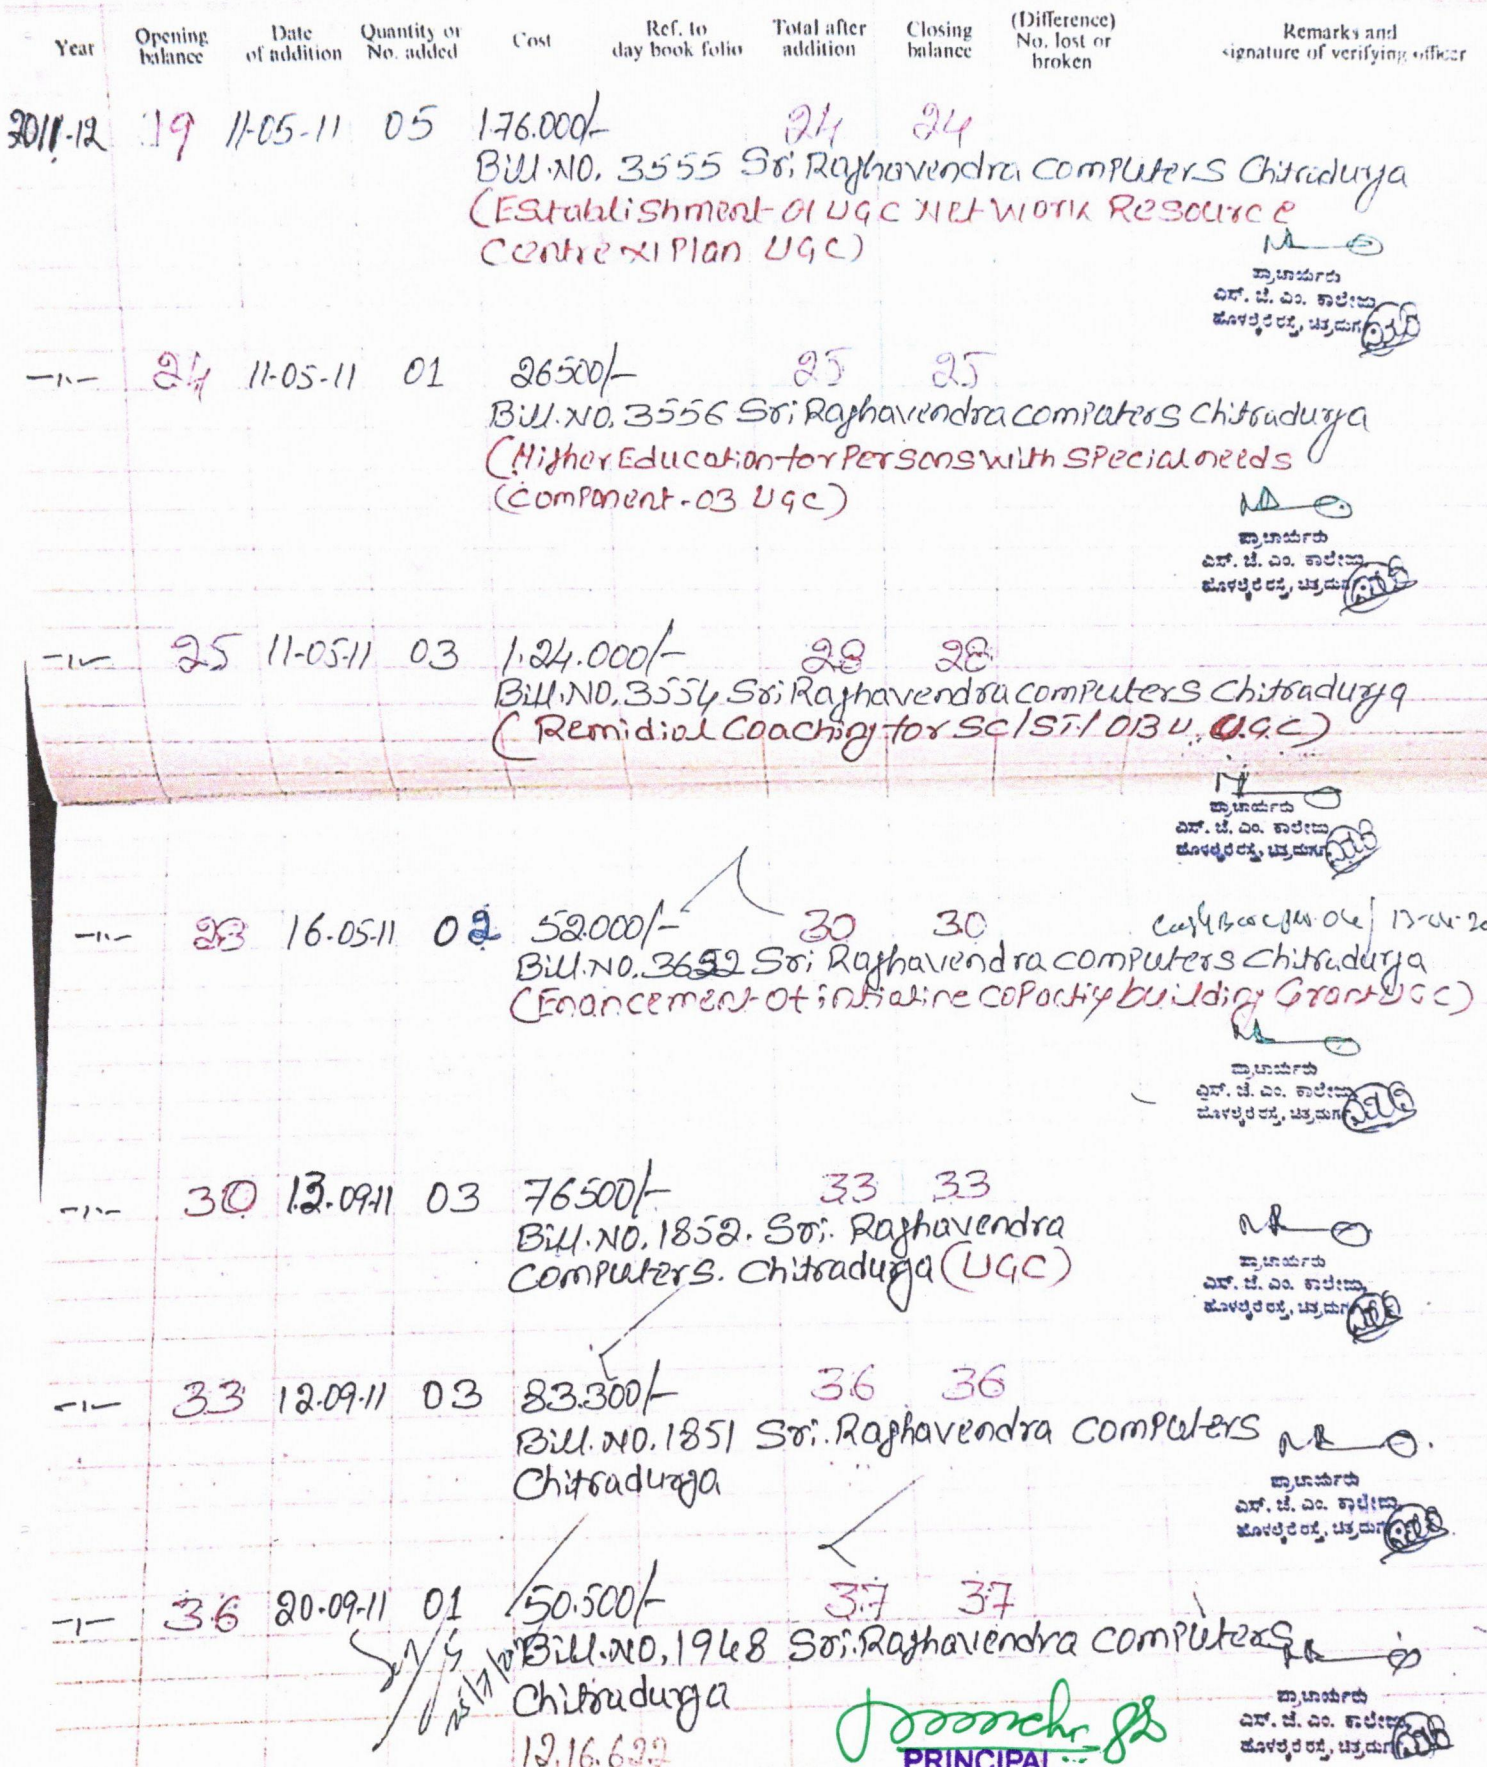 Year Opening balance Date of addition Quantity or No. added Cost Ref. to day book folio Total after addition Closing balance (Difference) No. lost or broken Remarks and signature of verifying officer
2011-12 19 11-05-11 05 1.76.000/- 24 24
Bill.NO. 3555 Sri Raghavendra computers Chitradurga
(Establishment of UGC Network Resource
Centre XI Plan UGC)
ಪ್ರಾಚಾರ್ಯರು
ಎಸ್. ಜೆ. ಎಂ. ಕಾಲೇಜು
ಹೊಳಲ್ಕೆರೆ ರಸ್ತೆ, ಚಿತ್ರದುರ್ಗ
-"- 24 11-05-11 01 26500/- 25 25
Bill.NO. 3556 Sri Raghavendra computers Chitradurga
(Higher Education for Persons with special needs
(component-03 UGC)
ಪ್ರಾಚಾರ್ಯರು
ಎಸ್. ಜೆ. ಎಂ. ಕಾಲೇಜು
ಹೊಳಲ್ಕೆರೆ ರಸ್ತೆ, ಚಿತ್ರದುರ್ಗ
-"- 25 11-05-11 03 1.24.000/- 28 28
Bill.NO. 3554 Sri Raghavendra computers Chitradurga
(Remidial Coaching for SC/ST/ UGC)
ಪ್ರಾಚಾರ್ಯರು
ಎಸ್. ಜೆ. ಎಂ. ಕಾಲೇಜು
ಹೊಳಲ್ಕೆರೆ ರಸ್ತೆ, ಚಿತ್ರದುರ್ಗ
-"- 28 16-05-11 02 52000/- 30 30
Bill.NO. Sri Raghavendra computers Chitradurga
(Enancement of intiatine copactiy building Grant UGC)
ಪ್ರಾಚಾರ್ಯರು
ಎಸ್. ಜೆ. ಎಂ. ಕಾಲೇಜು
ಹೊಳಲ್ಕೆರೆ ರಸ್ತೆ, ಚಿತ್ರದುರ್ಗ
-"- 30 13.09.11 03 76500/- 33 33
Bill.NO. 1852. Sri. Raghavendra
computers. Chitradurga (UGC)
ಪ್ರಾಚಾರ್ಯರು
ಎಸ್. ಜೆ. ಎಂ. ಕಾಲೇಜು
ಹೊಳಲ್ಕೆರೆ ರಸ್ತೆ, ಚಿತ್ರದುರ್ಗ
-"- 33 12.09.11 03 83.300/- 36 36
Bill.NO. 1851 Sri. Raghavendra computers
Chitradurga
ಪ್ರಾಚಾರ್ಯರು
ಎಸ್. ಜೆ. ಎಂ. ಕಾಲೇಜು
ಹೊಳಲ್ಕೆರೆ ರಸ್ತೆ, ಚಿತ್ರದುರ್ಗ
-"- 36 20-09-11 01 50.500/- 37 37
Bill.NO. 1948 Sri. Raghavendra computers
Chitradurga
ಪ್ರಾಚಾರ್ಯರು
ಎಸ್. ಜೆ. ಎಂ. ಕಾಲೇಜು
ಹೊಳಲ್ಕೆರೆ ರಸ್ತೆ, ಚಿತ್ರದುರ್ಗ
12.16.622
PRINCIPAL